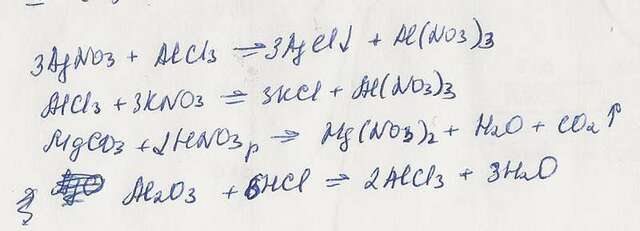 3AgNO3 + AlCl3 ⇒ 3AgCl↓ + Al(NO3)3
AlCl3 + 3KNO3 ⇌ 3KCl + Al(NO3)3
MgCO3 + 2HNO3 р ⇒ Mg(NO3)2 + H2O + CO2↑
Al2O3 + 6HCl ⇒ 2AlCl3 + 3H2O